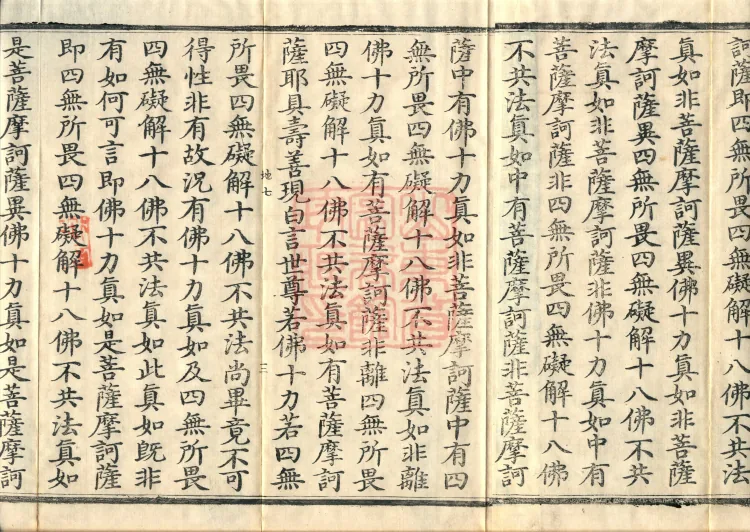 訶薩即四無所畏四無礙解十八佛不共法
真如非菩薩摩訶薩異佛十力真如非菩薩
摩訶薩異四無所畏四無礙解十八佛不共
法真如非菩薩摩訶薩非佛十力真如中有
菩薩摩訶薩非四無所畏四無礙解十八佛
不共法真如中有菩薩摩訶薩非菩薩摩訶
薩中有佛十力真如非菩薩摩訶薩中有四
無所畏四無礙解十八佛不共法真如非離
佛十力真如有菩薩摩訶薩非離四無所畏
四無礙解十八佛不共法真如有菩薩摩訶
薩耶具壽善現白言世尊若佛十力若四無
地七 三
所畏四無礙解十八佛不共法尚畢竟不可
得性非有故況有佛十力真如及四無所畏
四無礙解十八佛不共法真如此真如既非
有如何可言即佛十力真如是菩薩摩訶薩
即四無所畏四無礙解十八佛不共法真如
是菩薩摩訶薩異佛十力真如是菩薩摩訶